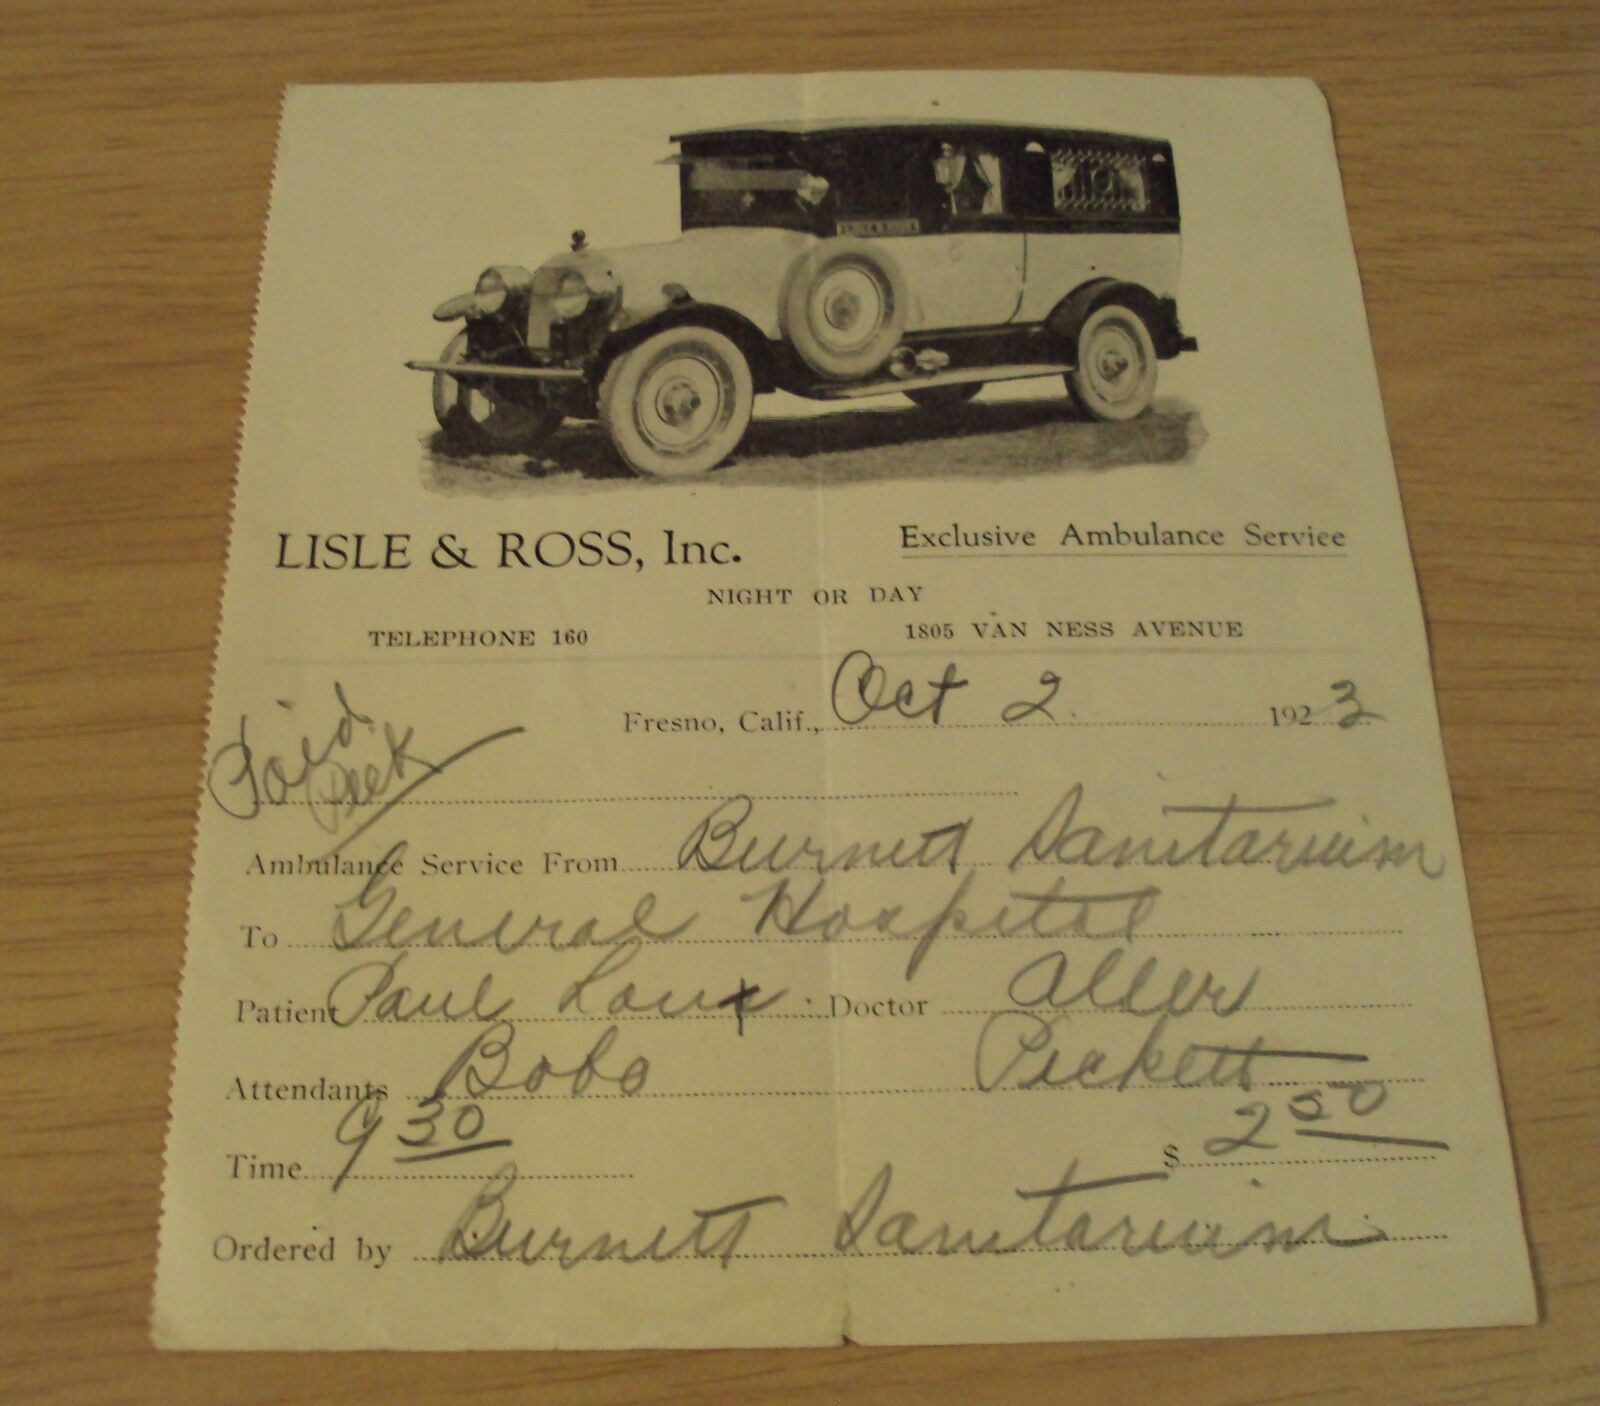 LISLE & ROSS
LISLE & ROSS, Inc.
Exclusive Ambulance Service
NIGHT OR DAY
TELEPHONE 160
1805 VAN NESS AVENUE
Fresno, Calif., Oct 2 1923
Paid
Ambulance Service From Burnett Sanitarium
To General Hospital
Patient Paul Doctor
Attendants Bobo Pickett
Time 9 30 $ 2 50
Ordered by Burnett Sanitarium